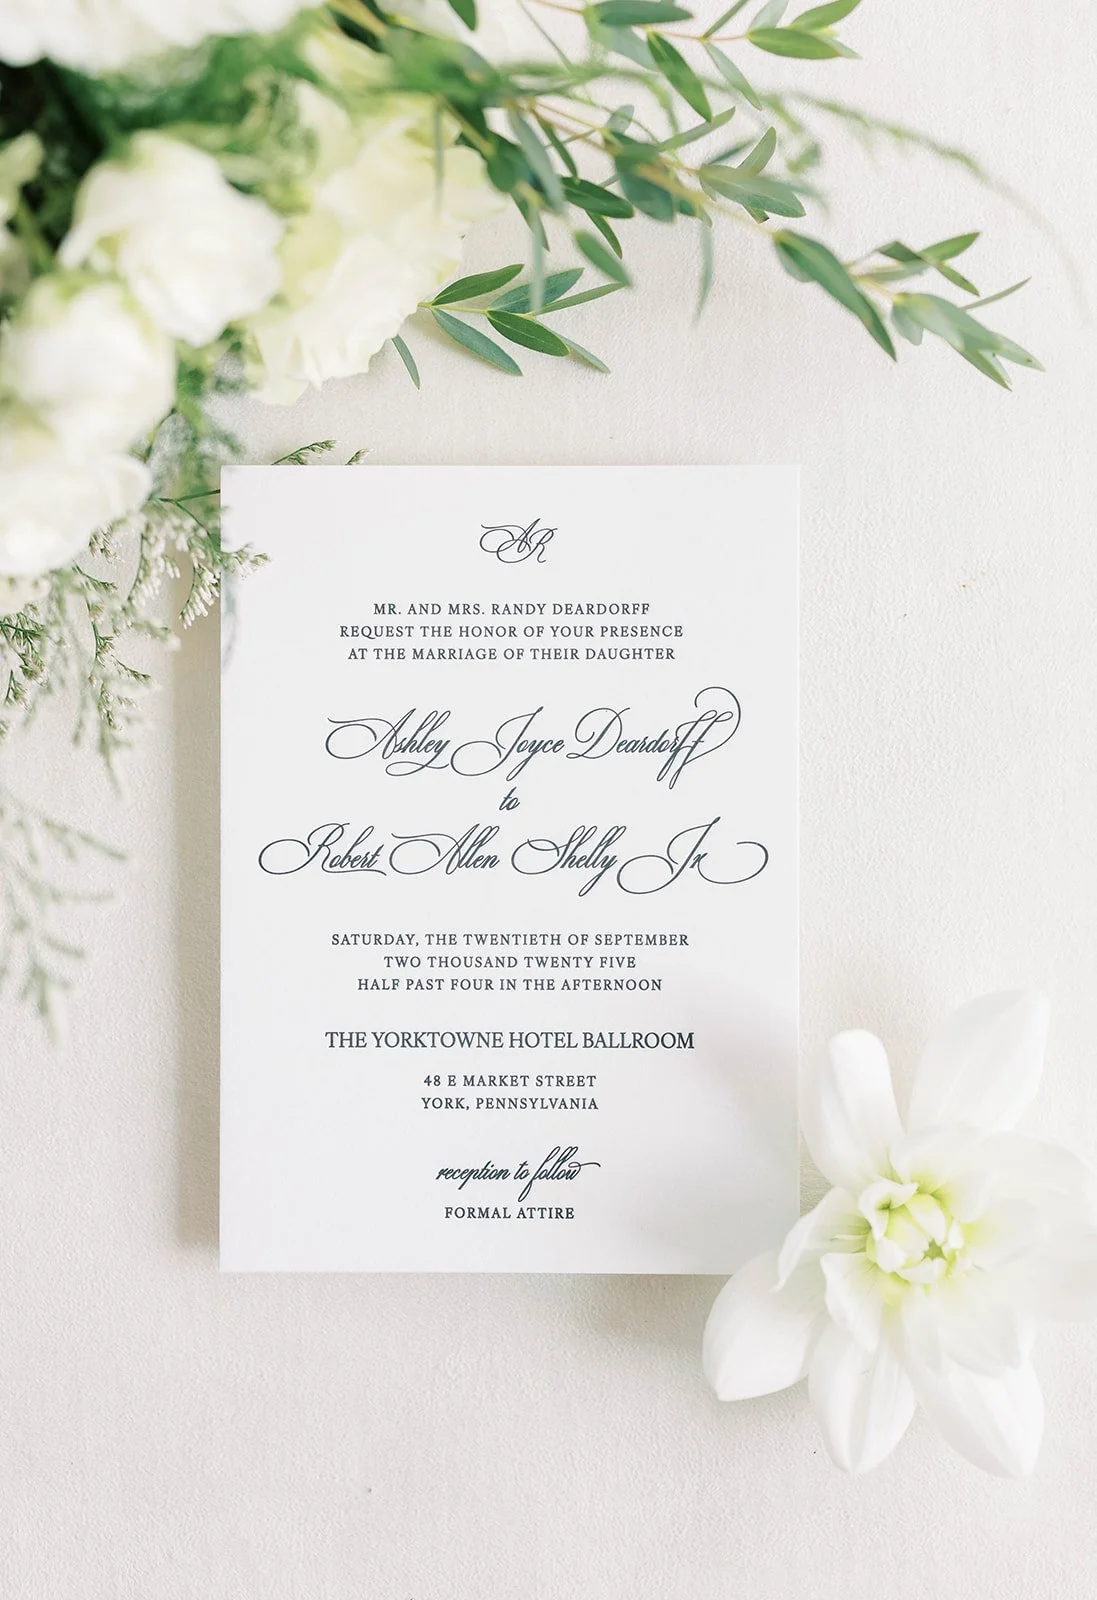 AR
MR. AND MRS. RANDY DEARDORFF
REQUEST THE HONOR OF YOUR PRESENCE
AT THE MARRIAGE OF THEIR DAUGHTER
Ashley Joyce Deardorff
to
Robert Allen Shelly Jr
SATURDAY, THE TWENTIETH OF SEPTEMBER
TWO THOUSAND TWENTY FIVE
HALF PAST FOUR IN THE AFTERNOON
THE YORKTOWNE HOTEL BALLROOM
48 E MARKET STREET
YORK, PENNSYLVANIA
reception to follow
FORMAL ATTIRE